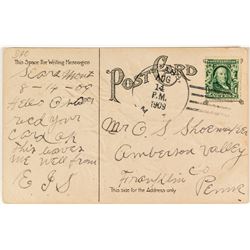 This Space For Writing Messages
POST CARD
Sears Mont
8-14-09
Hello
recd your
card ok
this leaves
me well from
E J S
AUG
14
P.M.
1909
Mr C. S. Shoemaker
Amberson Valley
Franklin Co
Penna
This side for the Address only